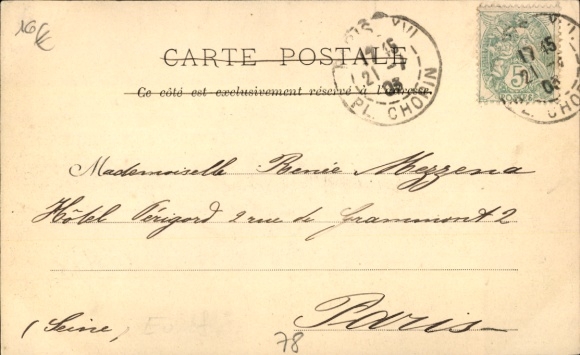 16
CARTE POSTALE
Ce côté est exclusivement réservé à l'adresse.
PARIS XVI
17 15
21
03
PL. CHOPIN
5
17 15
21
03
PL. CHOPIN
Mademoiselle Renée Mezzena
Hôtel Périgord 2 rue de Grammont 2
Paris
(Seine)
78